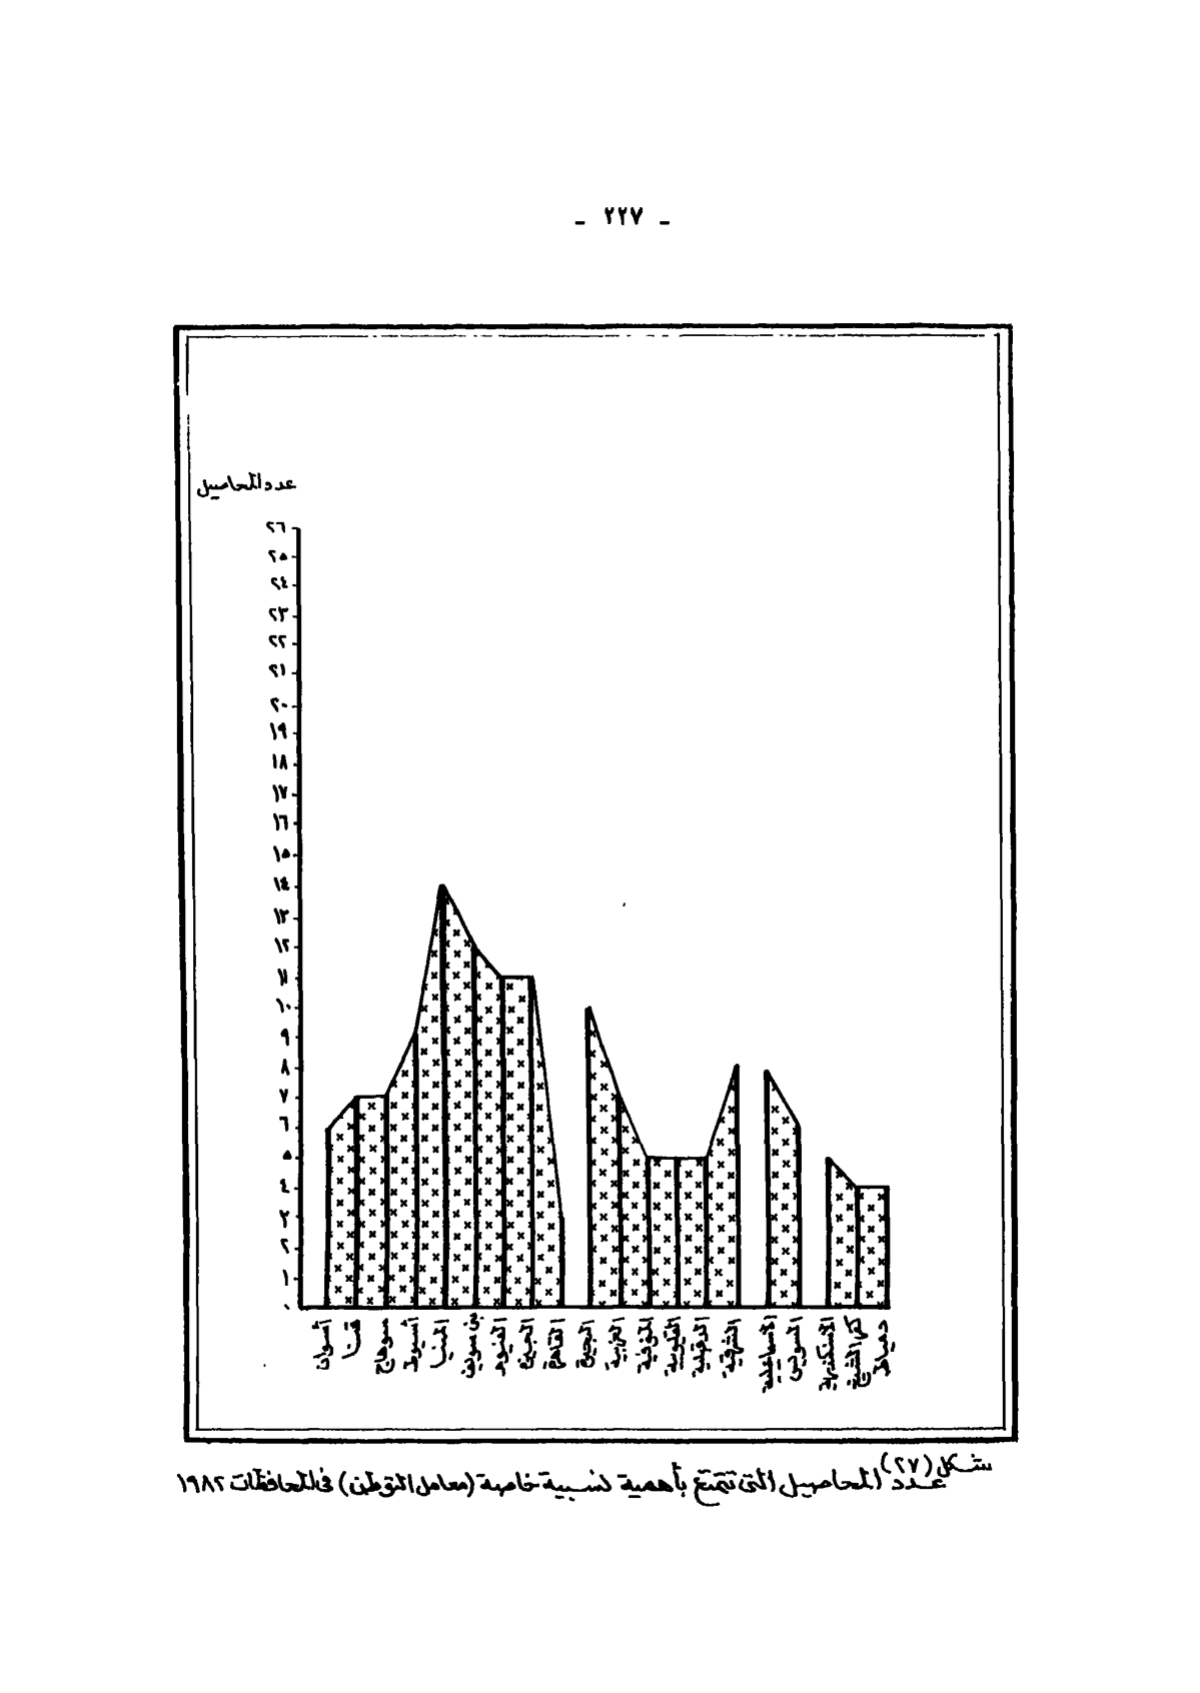 - ٢٢٧ -
عدد المحاصيل
٢٦
٢٥
٢٤
٢٣
٢٢
٢١
٢٠
١٩
١٨
١٧
١٦
١٥
١٤
١٣
١٢
١١
١٠
٩
٨
٧
٦
٥
٤
٣
٢
١
٠
أسوان
قنا
سوهاج
أسيوط
المنيا
بنى سويف
الفيوم
الجيزة
القاهرة
البحيرة
الغربية
المنوفية
القليوبية
الدقهلية
الشرقية
الاسماعيلية
السويس
الاسكندرية
كفر الشيخ
دمياط
شكل (٢٧)
عدد المحاصيل التى تتمتع بأهمية نسبية خاصة (معامل التوطن) فى المحافظات ١٩٨٢